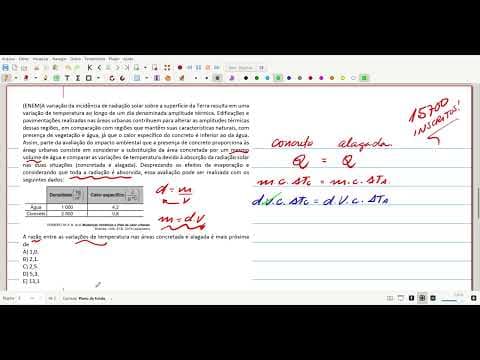 (ENEM)A variação da incidência de radiação solar sobre a superfície da Terra resulta em uma
variação de temperatura ao longo de um dia denominada amplitude térmica. Edificações e
pavimentações realizadas nas áreas urbanas contribuem para alterar as amplitudes térmicas
dessas regiões, em comparação com regiões que mantêm suas características naturais, com
presença de vegetação e água, já que o calor específico do concreto é inferior ao da água.
Assim, parte da avaliação do impacto ambiental que a presença de concreto proporciona às
áreas urbanas consiste em considerar a substituição da área concretada por um mesmo
volume de água e comparar as variações de temperatura devido à absorção da radiação solar
nas duas situações (concretada e alagada). Desprezando os efeitos da evaporação e
considerando que toda a radiação é absorvida, essa avaliação pode ser realizada com os
seguintes dados:
Densidade (kg/m³) Calor específico (J/g °C)
Água 1 000 4,2
Concreto 2 500 0,8
A razão entre as variações de temperatura nas áreas concretada e alagada é mais próxima
de
A) 1,0.
B) 2,1.
C) 2,5.
D) 5,3.
E) 13,1
d = m/v
m = d.V
15700
INSCRITOS!
concreto alagada.
Q = Q
m.c.ΔTc = m.c.ΔTA
d.V.c.ΔTc = d.V.c.ΔTA